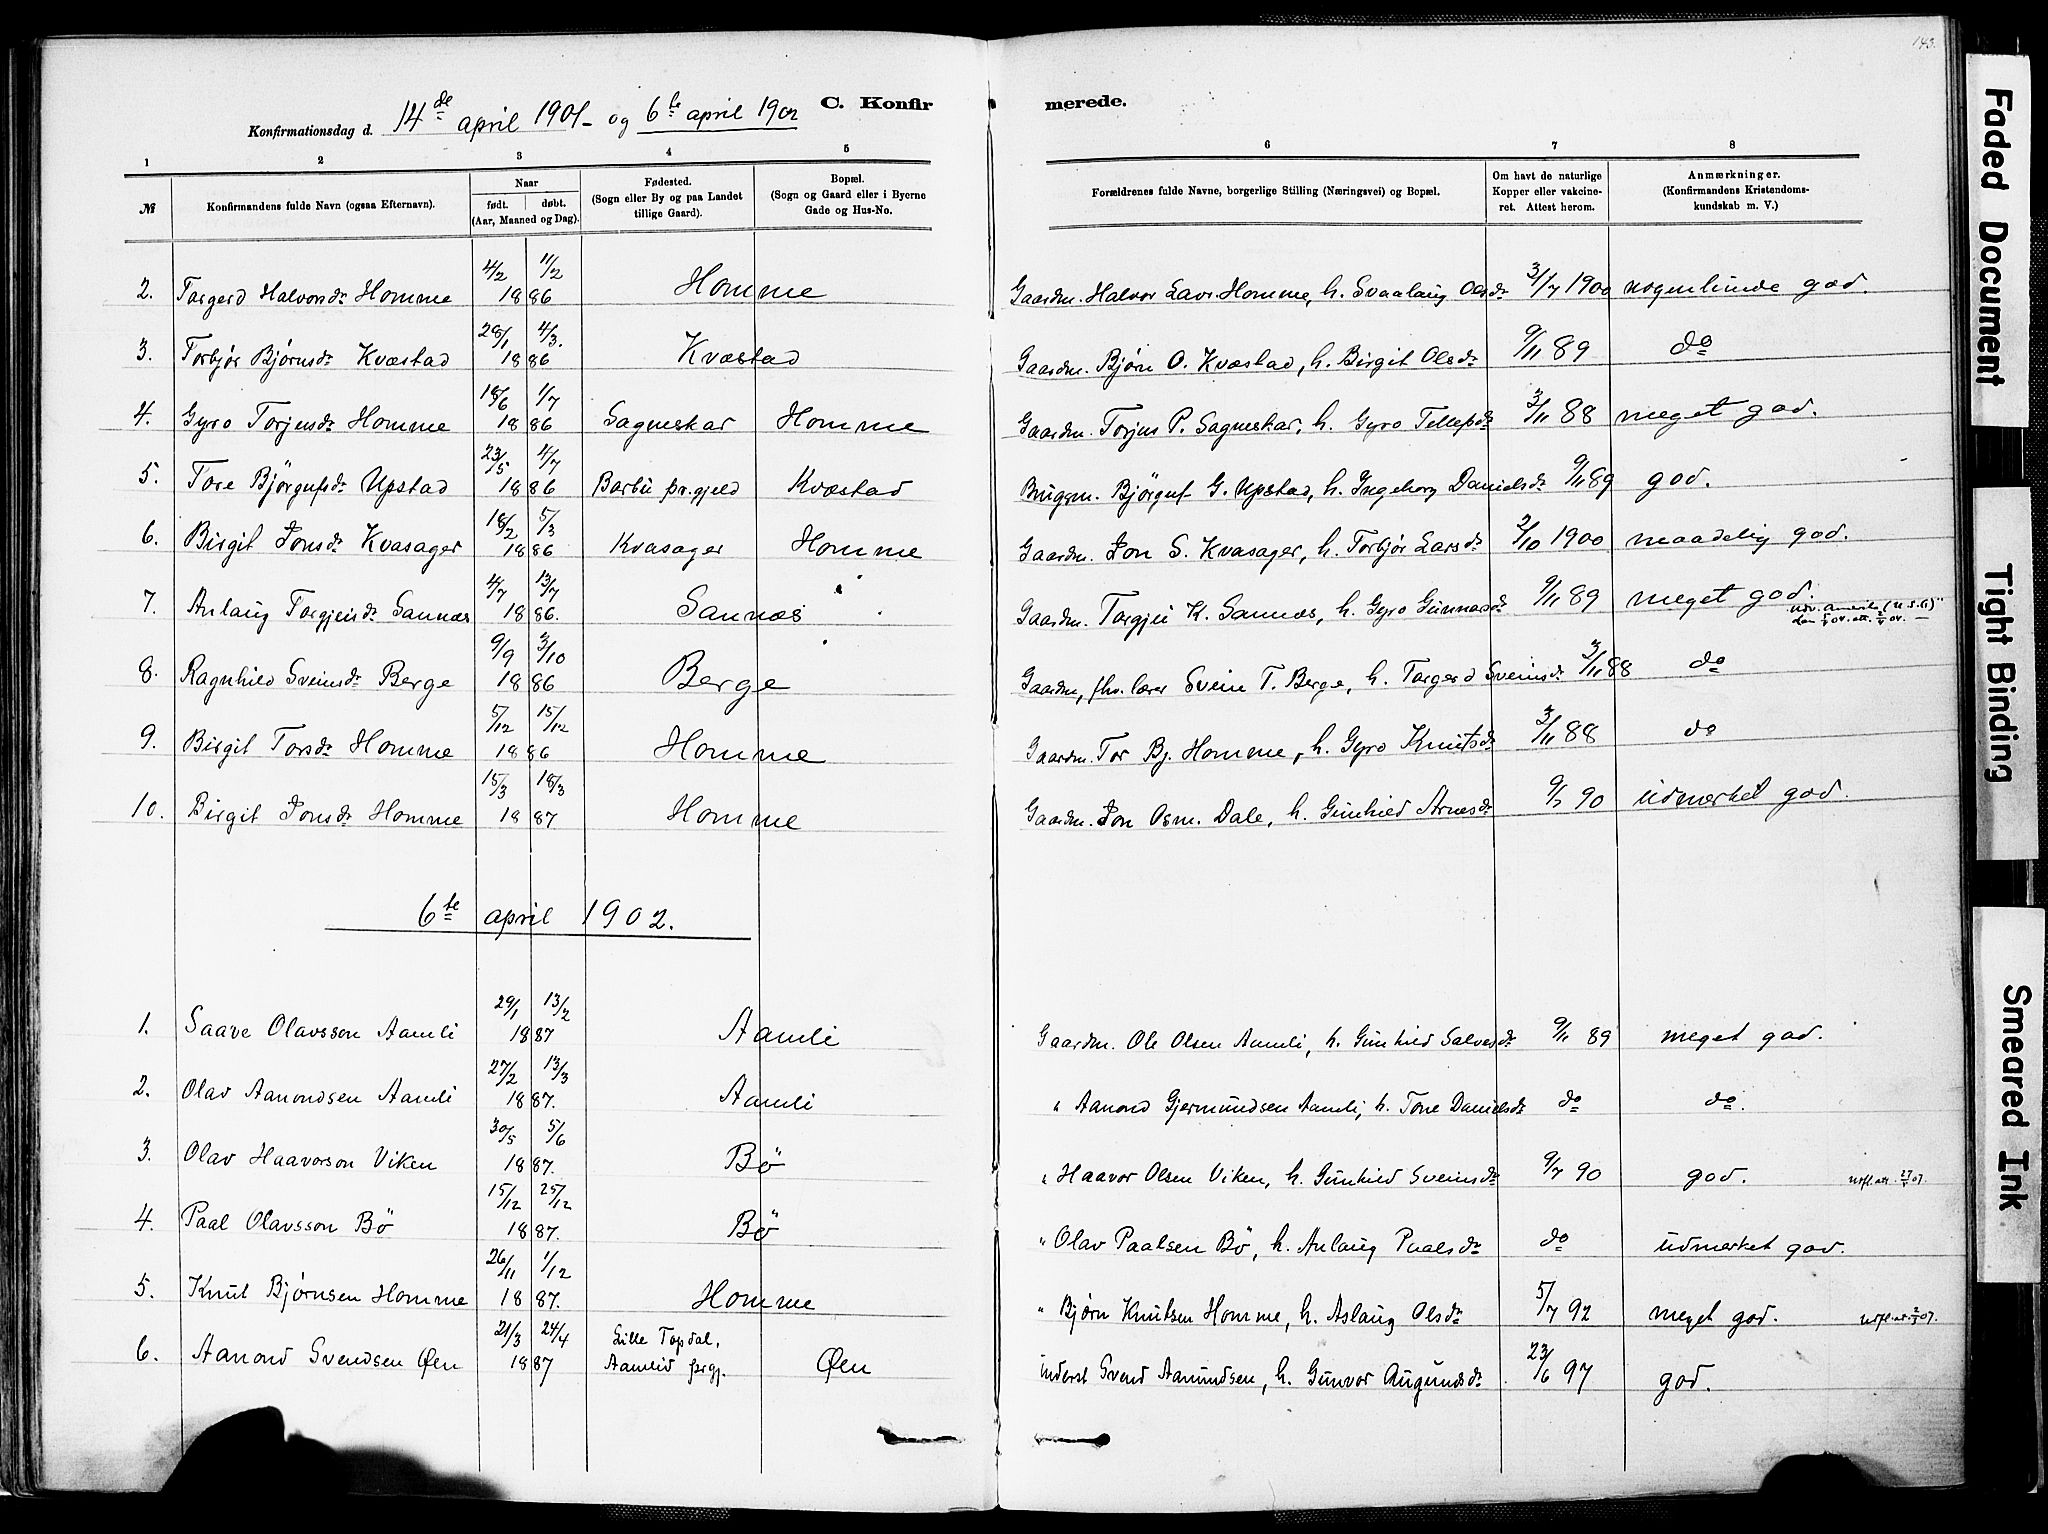 143.
C. Konfirmerede.
Konfirmationsdag d. 14de april 1901 - og 6te april 1902
1 2 3 4 5 6 7 8
№ Konfirmandens fulde Navn (ogsaa Efternavn). Naar født. døbt. (Aar, Maaned og Dag). Fødested. (Sogn eller By og paa Landet tillige Gaard). Bopæl. (Sogn og Gaard eller i Byerne Gade og Hus-No. Forældrenes fulde Navne, borgerlige Stilling (Næringsvei) og Bopæl. Om havt de naturlige Kopper eller vakcineret. Attest herom. Anmærkninger. (Konfirmandens Kristendomskundskab m. V.)
2. Torgerd Halvorsdr Homme 4/2 11/2 1886 Homme Gaardm. Halvor Lavr. Homme, h. Svaalaug Olsdr 3/7 1900 nogenlunde god.
3. Torbjør Bjørnsdr Kvæstad 29/1 4/3. 1886 Kvæstad Gaardm. Bjørn O. Kvæstad, h. Birgit Olsdr 9/11 89 do
4. Gyro Torjusdr Homme 18/6 1/7 1886 Sagneskar Homme Gaardm. Torjus P. Sagneskar, h. Gyro Tellefsdr 3/11 88 meget god.
5. Tore Bjørgufsdr Upstad 23/5 4/7 1886 Barbu pr.gjeld Kvæstad Brugsm. Bjørguf G. Upstad, h. Ingeborg Danielsdr 9/11 89 god.
6. Birgit Jonsdr Kvasager 18/2 5/3 1886 Kvasager Homme Gaardm. Jon S. Kvasager, h. Torbjør Larsdr 2/10 1900 maadelig god.
7. Anlaug Torgjeisdr Sannæs 4/7 13/7 1886. Sannæs Gaardm. Torgjei K. Sannæs, h. Gyro Gunnarsdr 9/11 89 meget god. udv. amerika (U.S.A)
8. Ragnhild Sveinsdr Berge 9/9 3/10 1886 Berge Gaardm, fhv. lærer Svein T. Berge, h. Torgerd Sveinsdr 3/11 88 do
9. Birgit Torsdr Homme 5/12 15/12 1886 Homme Gaardm. Tor Bj. Homme, h. Gyro Knutsdr 3/11 88 do
10. Birgit Jonsdr Homme 15/3 18/3 1887 Homme Gaardm. Jon Osm. Dale, h. Gunhild Arnesdr 9/7 90 udmerket god.
6te april 1902.
1. Saave Olavsson Aamli 29/1 13/2 1887 Aamli Gaardm. Ole Olsen Aamli, h. Gunhild Salvesdr 9/11 89 meget god.
2. Olav Aanondsen Aamli 27/2 13/3 1887. Aamli " Aanond Gjermundsen Aamli, h. Tone Danielsdr do do.
3. Olav Haavorson Viken 30/5 5/6 1887. Bö " Haavor Olsen Viken, h. Gunhild Sveinsdr 9/7 90 god. utfl.att. 27/5 07.
4. Paal Olavsson Bö 15/12 25/12 1887. Bö " Olav Paalsen Bö, h. Anlaug Paalsdr do udmerket god.
5. Knut Bjørnsen Homme 26/11 1/12 1887. Homme " Bjørn Knutsen Homme, h. Aslaug Olsdr 5/7 92 meget god.
6. Aanond Svendsen Øen 21/3 24/4 1887 Lille Topdal, Aamlid prgj. Øen inderst Svend Aanundsen, h. Gunvor Augundsdr 23/6 97 god.
Faded Document
Tight Binding
Smeared Ink